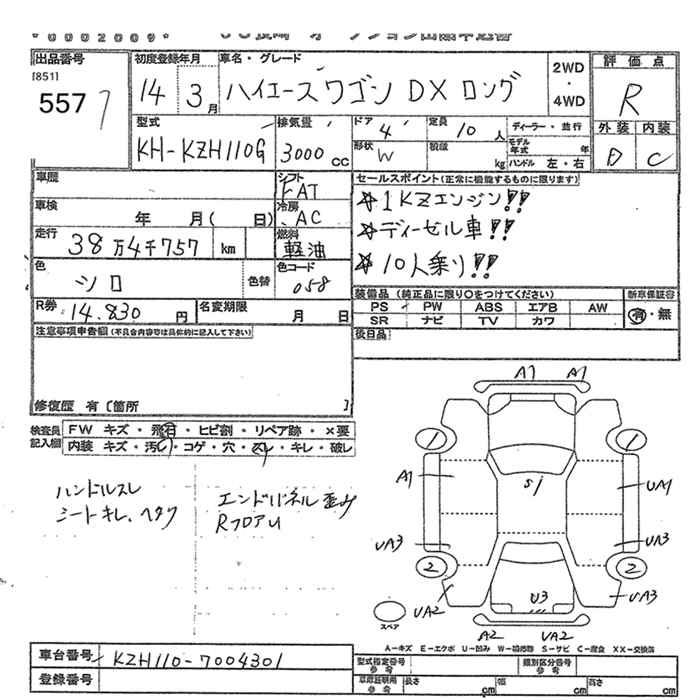 出品番号
[851]
5577
初度登録年月
14 3月
車名・グレード
ハイエースワゴン DX ロング
2WD
・
4WD
評価点
R
外装 内装
D C
型式
KH-KZH110G
排気量
3000 CC
ドア
4
定員
10人
形状
W
積載
kg
ディーラー・並行
モデル年式 年
ハンドル 左・右
車歴
シフト
FAT
車検
年 月( 日)
冷房
AC
走行
38万4千757 km
燃料
軽油
色
シロ
色替
色コード
058
R券
14.830 円
名変期限
月 日
セールスポイント(正常に機能するものに限ります)
☆1KZエンジン!!
☆ディーゼル車!!
☆10人乗り!!
装備品 (純正品に限り○をつけてください)
新車保証書
PS PW ABS エアB AW
SR ナビ TV カワ
有・無
後日品
注意事項申告欄(不具合内容等は具体的に記入して下さい)
修復歴 有〔箇所 〕
検査員
記入欄
FW キズ・飛石・ヒビ割・リペア跡・×要
内装 キズ・汚レ・コゲ・穴・スレ・キレ・破レ
ハンドルスレ
シートキレ、ヘタリ
エンドパネル歪み
RフロアU
A1 A1
1 1
A1
S1
UA1
UA3
UA3
2 2
X
UA2
U3
UA3
スペア
A2 UA2
A-キズ E-エクボ U-凹み W-補修跡 S-サビ C-腐食 XX-交換済
車台番号
KZH110-7004301
登録番号
型式指定番号
参考
類別区分番号
参考
車庫証明用
参考
長さ cm
幅 cm
高さ cm